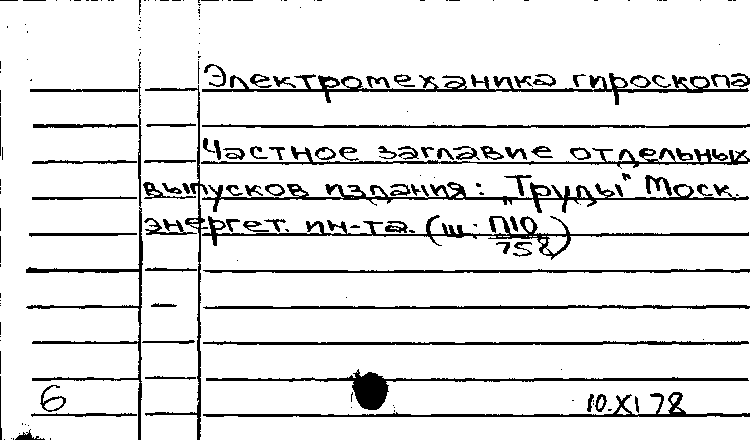 Электромеханика гироскопа
Частное заглавие отдельных
выпусков издания: „Труды" Моск.
энергет. ин-та. (ш: П10
758)
6
10.XI 78